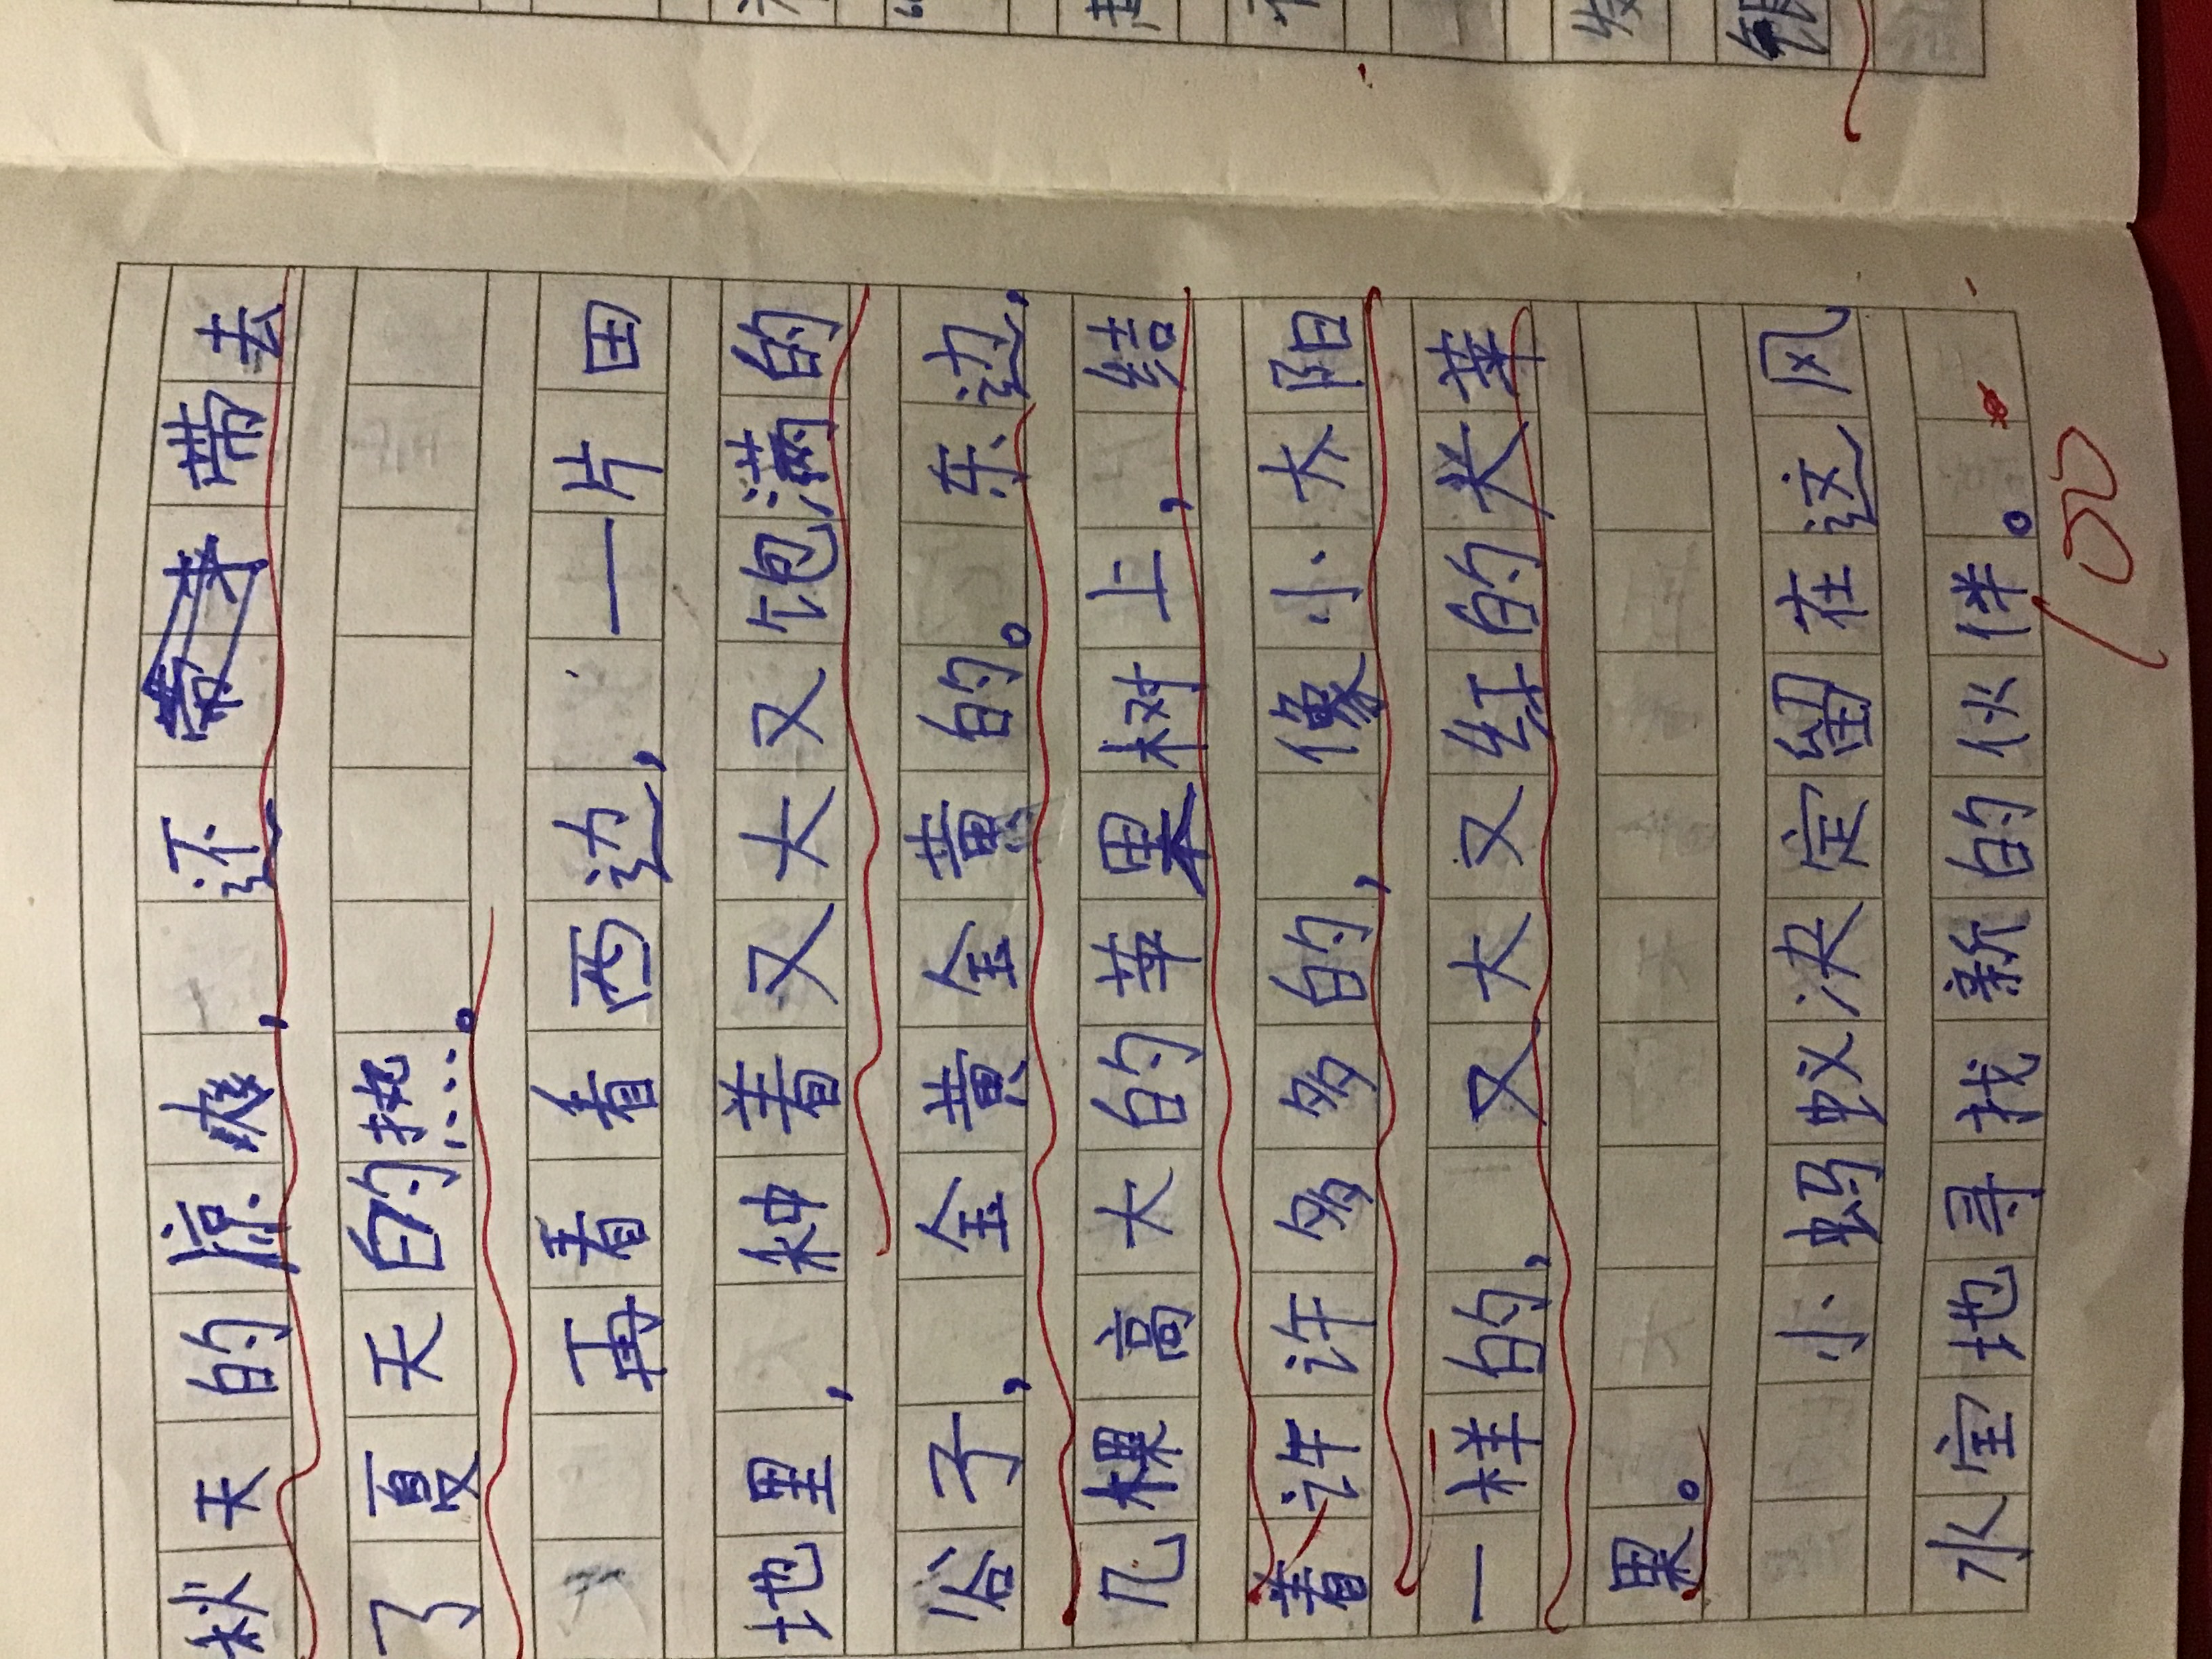 秋天的凉爽，还带去
了夏天的热……。
再看看西边，一片田
地里，种着又大又饱满的
谷子，金黄金黄的。东边，
几棵高大的苹果树上，结
着许许多多的，像小太阳
一样的，又大又红的大苹
果。
小蚂蚁决定留在这风
水宝地寻找新的伙伴。
100